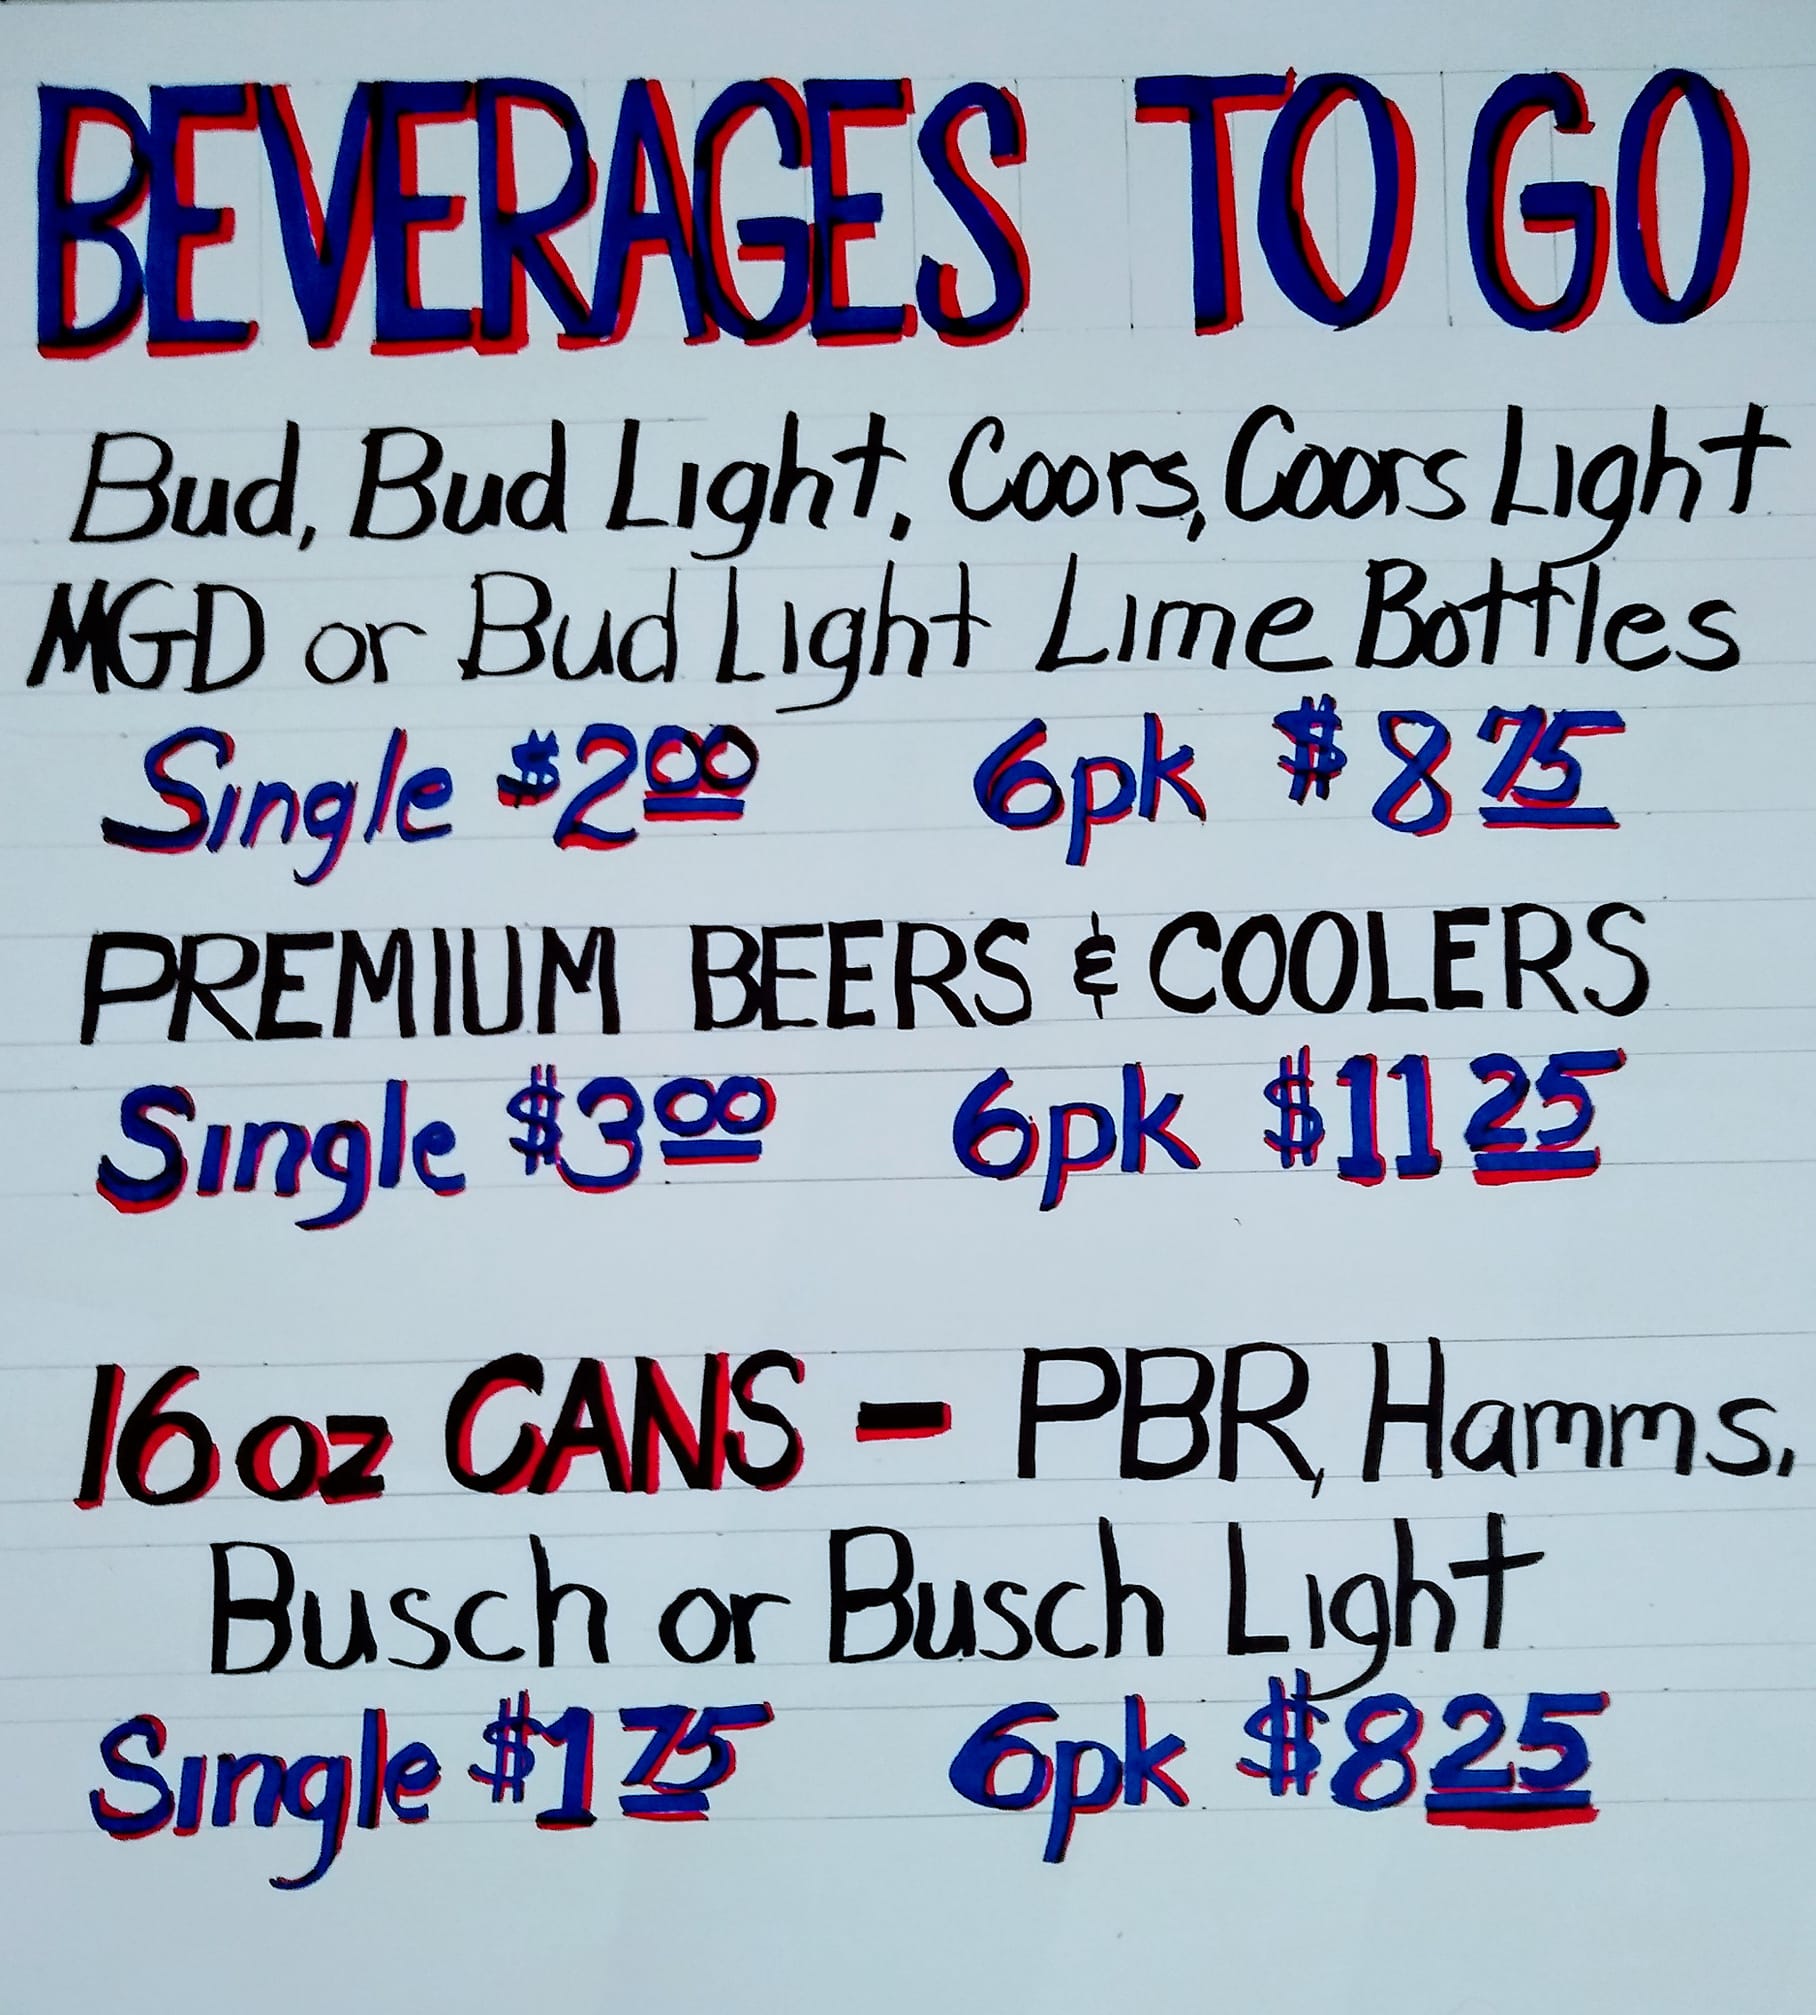 BEVERAGES TO GO
Bud, Bud Light, Coors, Coors Light
MGD or Bud Light Lime Bottles
Single $2.00 6pk $8.75
PREMIUM BEERS & COOLERS
Single $3.00 6pk $11.25
16 oz CANS - PBR, Hamms,
Busch or Busch Light
Single $1.75 6pk $8.25